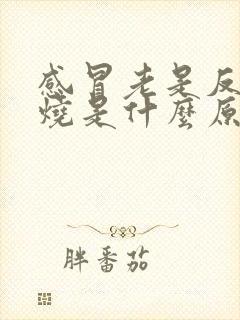 感冒老是反
燒是什麼原
胖番茄